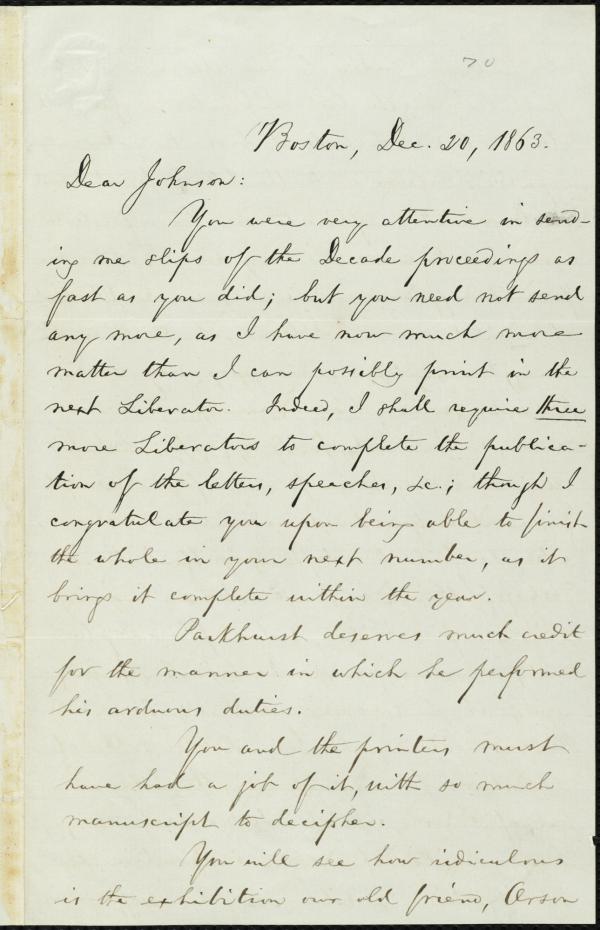 70
Boston, Dec. 20, 1863.
Dear Johnson:
You were very attentive in send-
ing me slips of the Decade proceedings as
fast as you did; but you need not send
any more, as I have now much more
matter than I can possibly print in the
next Liberator. Indeed, I shall require three
more Liberators to complete the publica-
tion of the letters, speeches, &c.; though I
congratulate you upon being able to finish
the whole in your next number, as it
brings it complete within the year.
Parkhurst deserves much credit
for the manner in which he performed
his arduous duties.
You and the printers must
have had a job of it, with so much
manuscript to decipher.
You will see how ridiculous
is the exhibition our old friend, Orson